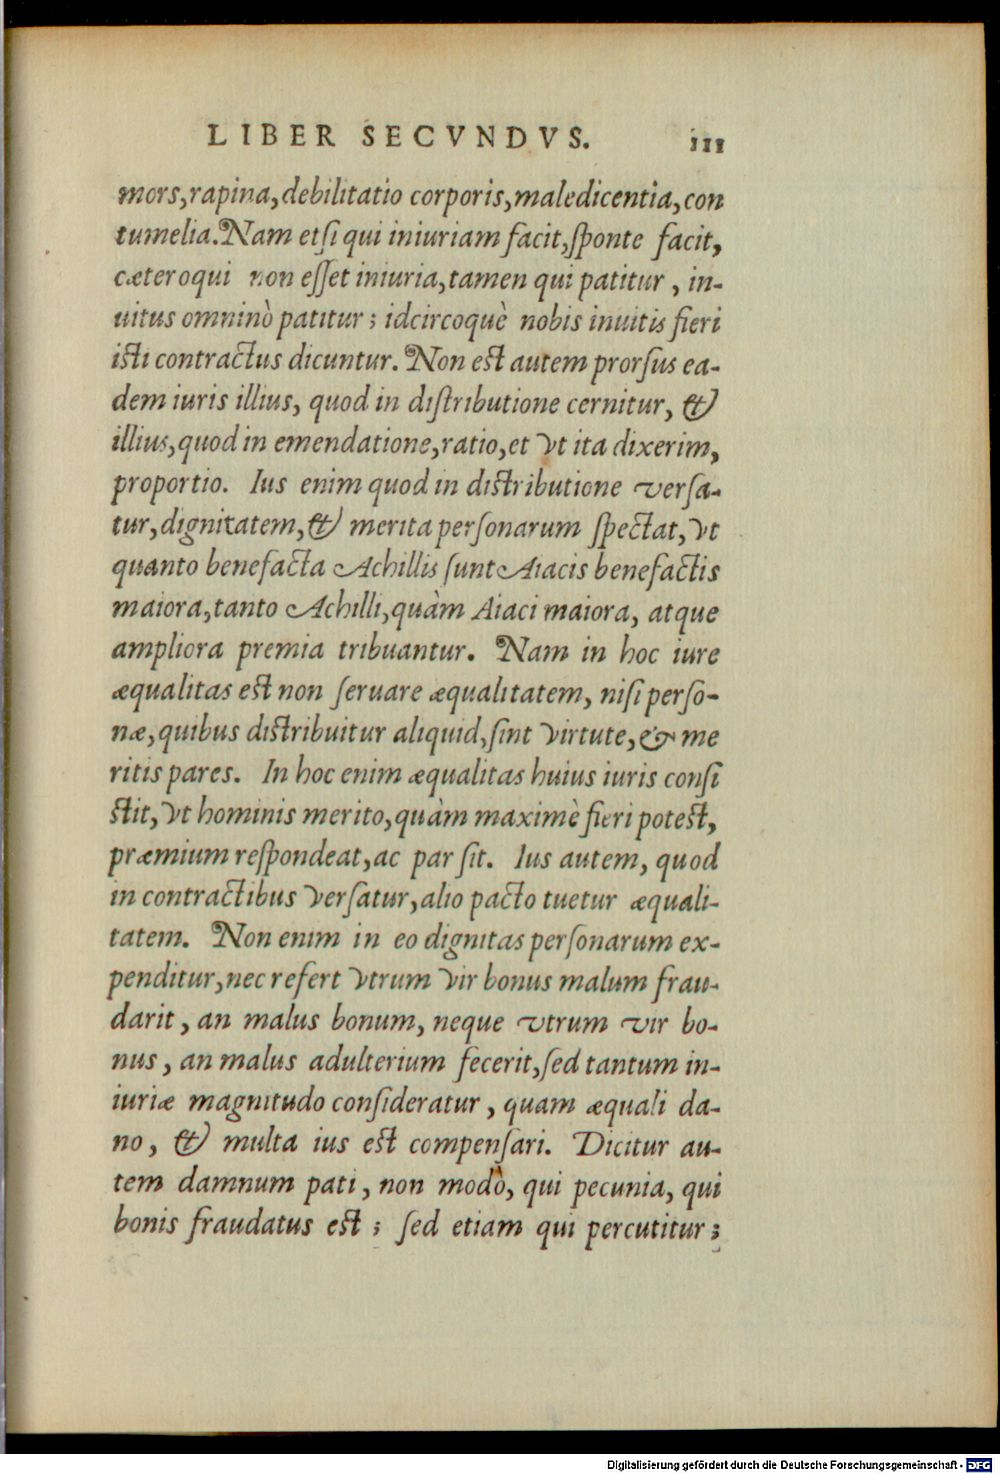 LIBER SECVNDVS. 111
mors, rapina, debilitatio corporis, maledicentia, con
tumelia. Nam etsi qui iniuriam facit, sponte facit,
cæteroqui non esset iniuria, tamen qui patitur, in-
uitus omninò patitur; idcircoquè nobis inuitis fieri
isti contractus dicuntur. Non est autem prorsus ea-
dem iuris illius, quod in distributione cernitur, &
illius, quod in emendatione, ratio, et vt ita dixerim,
proportio. Ius enim quod in distributione versa-
tur, dignitatem, & merita personarum spectat, vt
quanto benefacta Achillis sunt Aiacis benefactis
maiora, tanto Achilli, quàm Aiaci maiora, atque
ampliora premia tribuantur. Nam in hoc iure
æqualitas est non seruare æqualitatem, nisi perso-
næ, quibus distribuitur aliquid, sint virtute, & me
ritis pares. In hoc enim æqualitas huius iuris consi
stit, vt hominis merito, quàm maximè fieri potest,
præmium respondeat, ac par sit. Ius autem, quod
in contractibus versatur, alio pacto tuetur æquali-
tatem. Non enim in eo dignitas personarum ex-
penditur, nec refert vtrum vir bonus malum frau-
darit, an malus bonum, neque vtrum vir bo-
nus, an malus adulterium fecerit, sed tantum in-
iuriæ magnitudo consideratur, quam æquali da-
no, & multa ius est compensari. Dicitur au-
tem damnum pati, non modò, qui pecunia, qui
bonis fraudatus est; sed etiam qui percutitur;
Digitalisierung gefördert durch die Deutsche Forschungsgemeinschaft - DFG